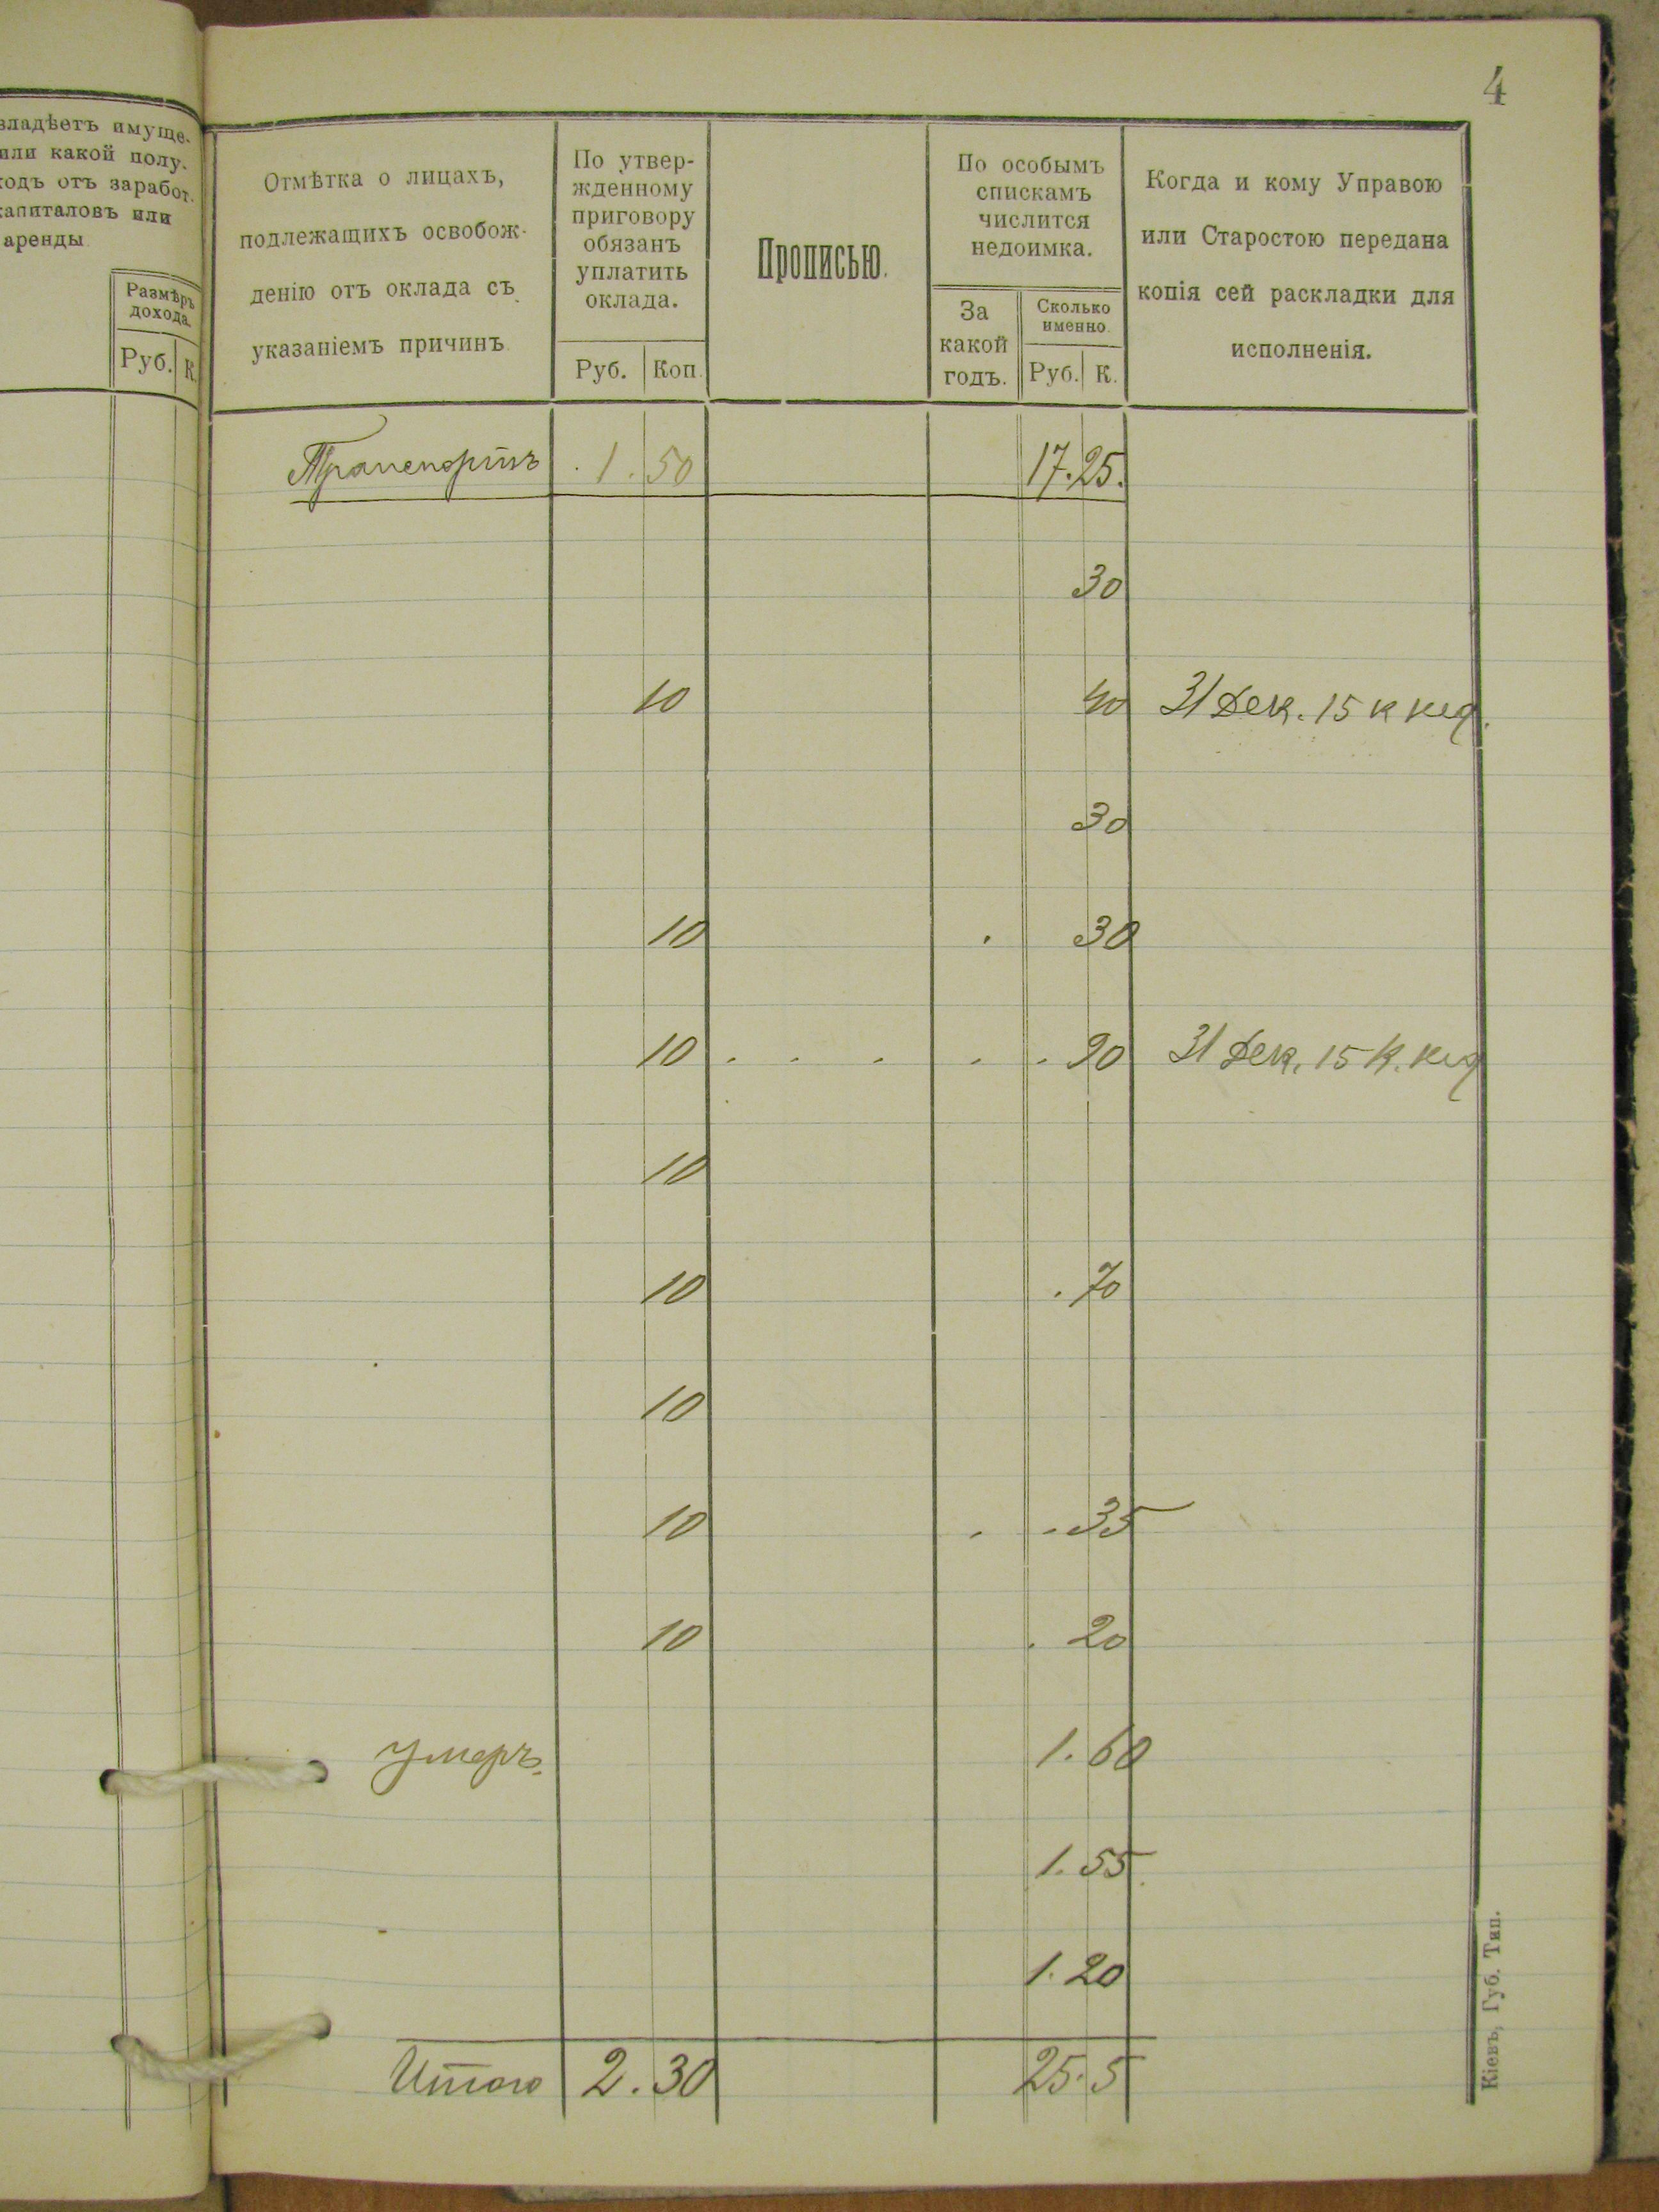 4
владѣетъ имуще-
или какой полу-
ходъ отъ заработ.
капиталовъ или
аренды
Размѣръ
дохода.
Руб. К.
Отмѣтка о лицахъ,
подлежащихъ освобож-
денію отъ оклада съ
указаніемъ причинъ
По утвер-
жденному
приговору
обязанъ
уплатить
оклада.
Руб. Коп.
Прописью.
По особымъ
спискамъ
числится
недоимка.
За
какой
годъ.
Сколько
именно.
Руб. К.
Когда и кому Управою
или Старостою передана
копія сей раскладки для
исполненія.
Транспортъ 1. 50 17. 25.
30
10 40 31 Дек. 15 к
30
10 30
10 90 31 Дек. 15 к.
10
10 70
10
10 35
10 20
умеръ. 1. 60
1. 55
1. 20
Итого 2. 30 25. 5
Кіевъ, Губ. Тип.